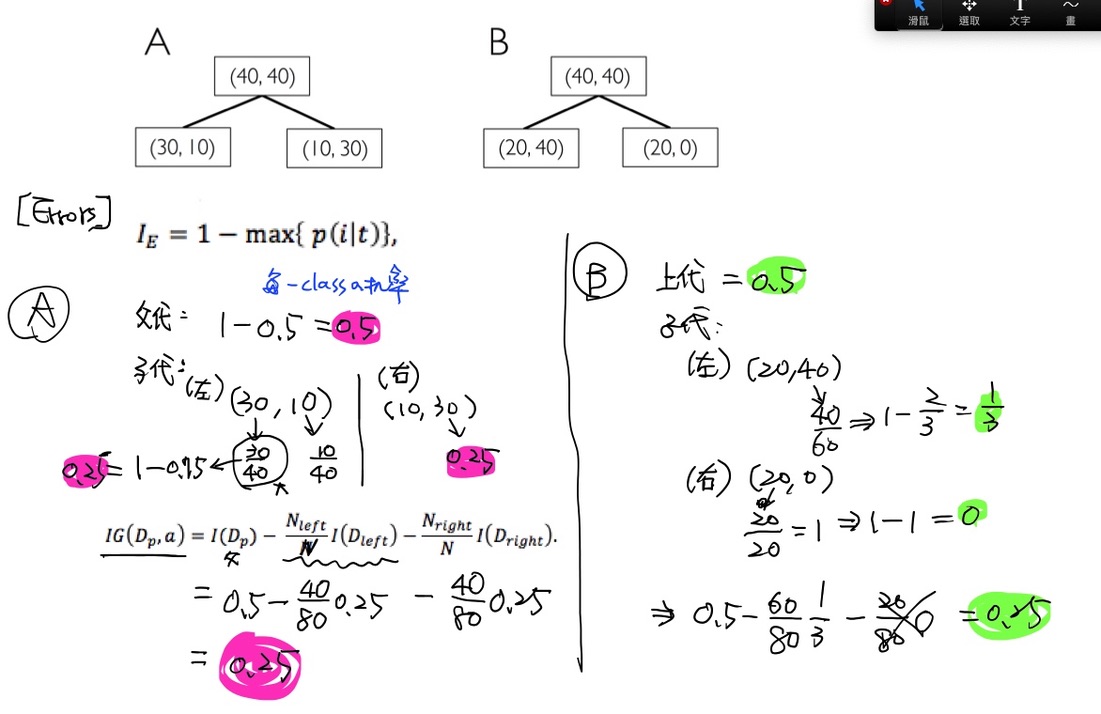 滑鼠 選取 文字 畫
A
(40, 40)
(30, 10) (10, 30)
B
(40, 40)
(20, 40) (20, 0)
[Errors]
I_E = 1 − max{ p(i|t)},
A
父代: 1 − 0.5 = 0.5
子代:
(左) (30, 10)
30/40 10/40
0.25 = 1 − 0.75
(右)
(10, 30)
0.25
IG(D_p, a) = I(D_p) − N_left/N I(D_left) − N_right/N I(D_right).
= 0.5 − 40/80 0.25 − 40/80 0.25
= 0.25
B
上代 = 0.5
子代:
(左) (20,40)
40/60 ⇒ 1 − 2/3 = 1/3
(右) (20, 0)
20/20 = 1 ⇒ 1 − 1 = 0
⇒ 0.5 − 60/80 1/3 − 20/80 0 = 0.25